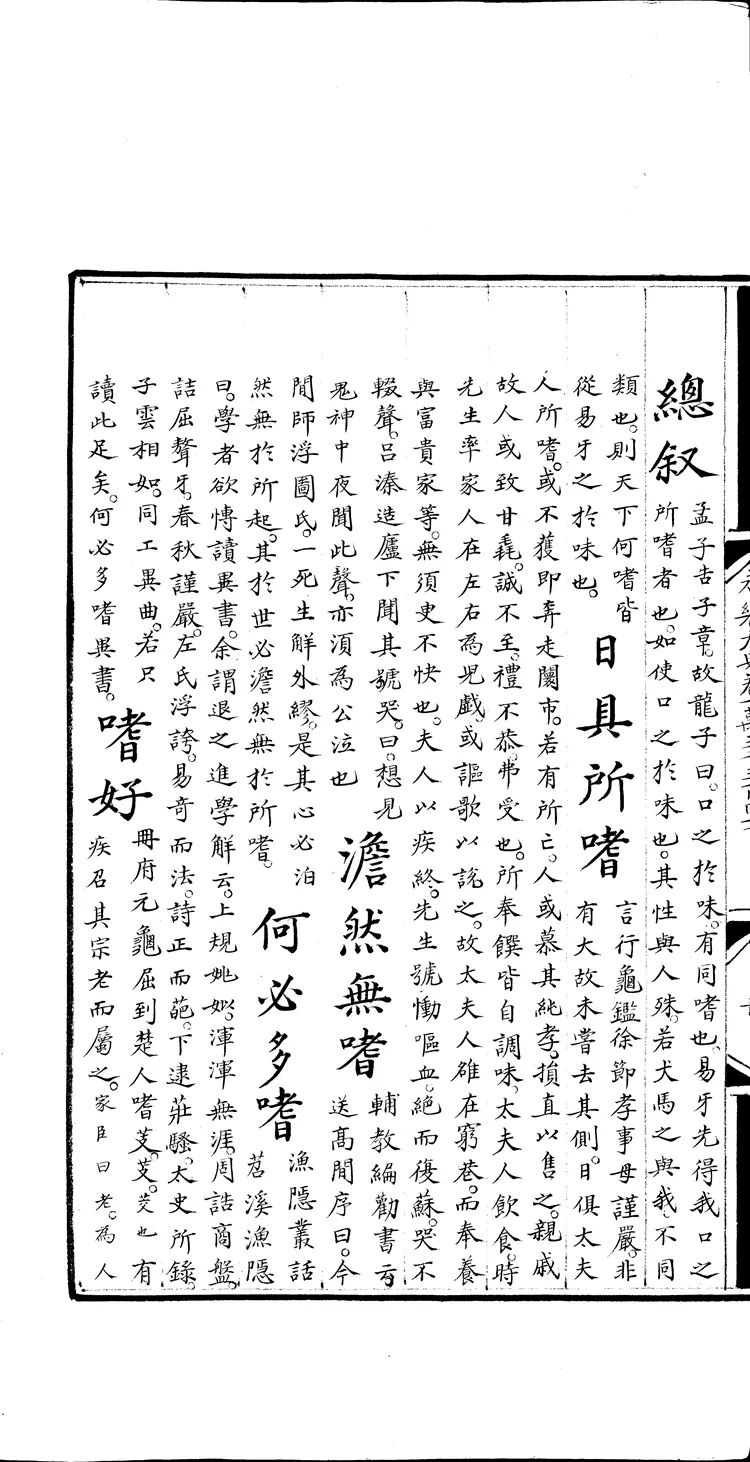 總叙
孟子告子章。故龍子曰。口之於味。有同嗜也。易牙先得我口之
所嗜者也。如使口之於味也。其性與人殊。若犬馬之與我不同
類也。則天下何嗜皆
從易牙之於味也。
日具所嗜
言行龜鑑徐節孝事母謹嚴。非
有大故未嘗去其側。日俱太夫
人所嗜。或不獲即奔走闤市。若有所亡。人或慕其純孝。損直以售之。親戚
故人或致甘毳。誠不至。禮不恭。弗受也。所奉饌皆自調味。太夫人飲食。時
先生率家人在左右為兒戲。或謳歌以說之。故太夫人雖在窮巷。而奉養
與富貴家等。無須臾不快也。夫人以疾終。先生號慟嘔血。絕而復蘇。哭不
輟聲。呂溱造廬下聞其號哭。曰。想見
鬼神中夜聞此聲。亦須為公泣也
澹然無嗜
輔教編勸書云
送高閒序曰。今
閒師浮圖氏。一死生解外繆。是其心必泊
然無於所起。其於世必澹然無於所嗜。
何必多嗜
漁隱叢話
苕溪漁隱
曰。學者欲慱讀異書。余謂退之進學解云。上規姚姒。渾渾無涯。周誥商盤。
詰屈聱牙。春秋謹嚴。左氏浮誇。易奇而法。詩正而葩。下逮莊騷。太史所錄。
子雲相如。同工異曲。若只
讀此足矣。何必多嗜異書。
嗜好
冊府元龜屈到楚人嗜芰。芰。芰也有
疾召其宗老而屬之。家臣曰老。為人